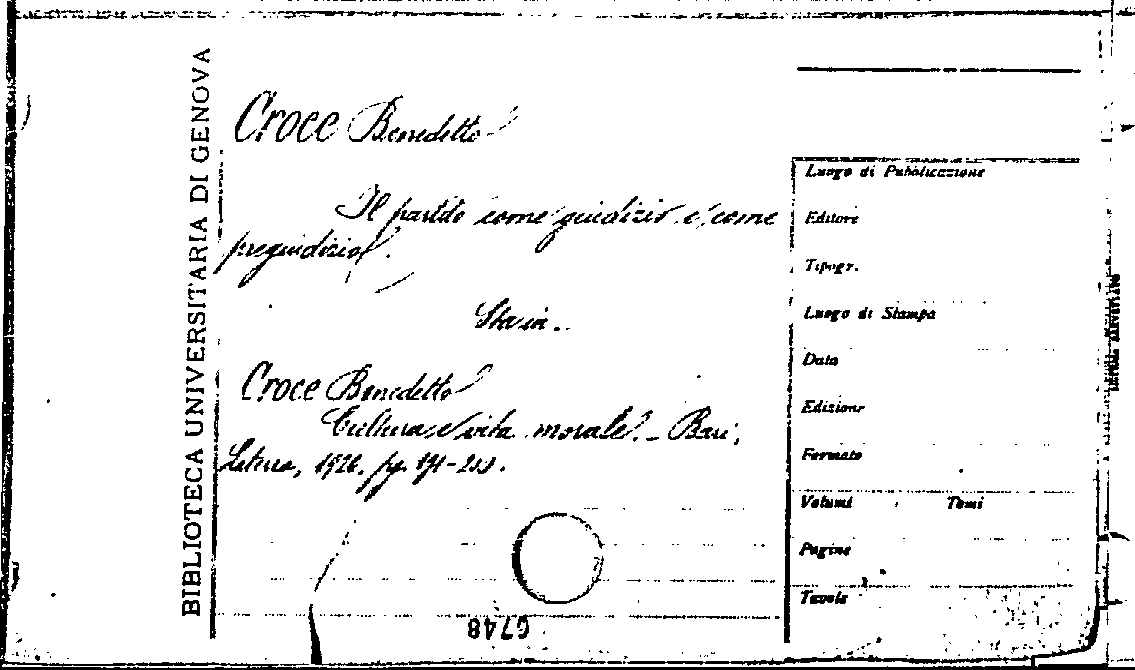 BIBLIOTECA UNIVERSITARIA DI GENOVA
Croce Benedetto
Il partito come giudizio e come
pregiudizio.
Sta in.
Croce Benedetto
Cultura e vita morale. - Bari,
Laterza, 1926. pp.
Luogo di Pubblicazione
Editore
Tipogr.
Luogo di Stampa
Data
Edizione
Formato
Volumi Tomi
Pagine
Tavole
6748